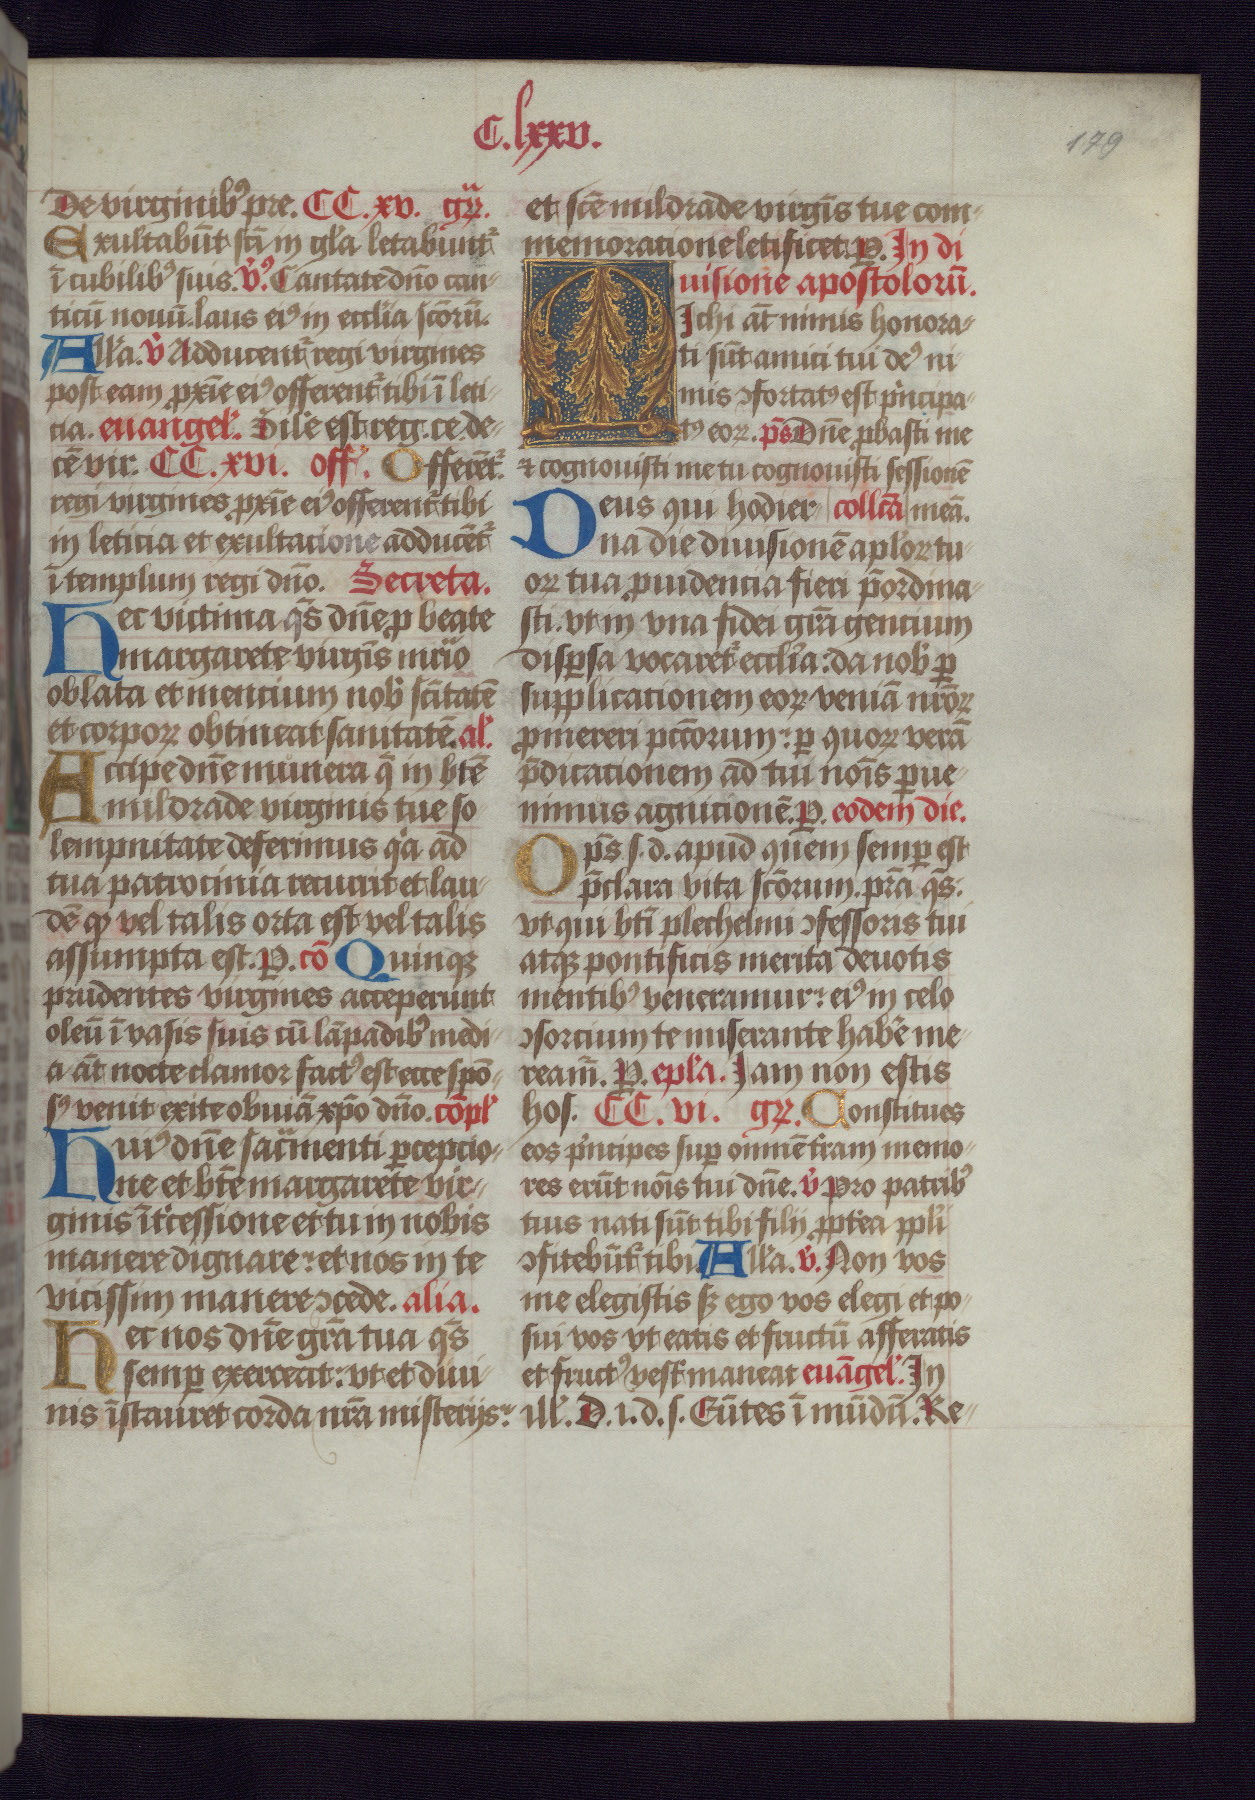 C.lxxv.
179
De virginibꝰ pre. CC. xv. gͬꝝ.
Exultabūt sc̄i in gl̓a letabunt᷑
ī cubilibꝰ suis. v̓ꝰ. Cantate dn̄o can-
ticū nouū. laus eiꝰ in eccl̓ia sc̄orū.
All̓a. v̓ Adducent᷑ regi virgines
post eam ꝓxīe eiꝰ offerent᷑ tibi ī leti-
cia. euangel̓. Sil̓e est reg. ce. de-
cē vir. CC. xvi. off̓. Offerēt᷑
regi virgines ꝓxīe eiꝰ offerent᷑ tibi
in leticia et exultacione adducēt᷑
ī templum regi dn̄o. Secreta.
Hec victima q̄s dn̄e ꝓ beate
margarete virgīs mr̄is
oblata et mencium nob̓ sc̄itatē
et corpoꝝ obtineat sanitatē. al̓.
Accipe dn̄e munera q̄ in bt̄e
mildrade virginis tue so
lempnitate deferimus q̓a ad
tua patrocinia recurrit et lau-
dē qꝫ vel talis orta est vel talis
assumpta est. P. cō Quinqꝫ
prudentes virgines acceperunt
oleū ī vasis suis cū lāpadibꝰ medi-
a āt nocte clamor factꝰ est ecce spō-
sꝰ venit exite obuiā xp̄o dn̄o. cōpl̓
Huiꝰ dn̄e sac̄menti ꝑcepcio-
ne et bt̄e margarete vir-
ginis īt̓cessione et tu in nobis
manere dignare: et nos in te
vicissim manere ꝯcede. alia.
Hec nos dn̄e gr̄a tua q̄s
semꝑ exerceat: vt et diui-
nis īstauret corda nr̄a misterijs:
et sc̄e mildrade virgīs tue com-
memoratione letificet. P. In di
uisione apostolorū.
Michi āt nimis honora-
ti sūt amici tui deꝰ ni
mis ꝯfortatꝰ est p̓ncipa-
tꝰ eoꝝ. p̄s Dn̄e ꝓbasti me
⁊ cognouisti me tu cognouisti sessionē
Deus qui hodier collc̄a meā.
na die diuisionē apl̓oꝝ tu-
oꝝ tua ꝓuidencia fieri p̄ordina-
sti. vt in vna fidei gr̄a gencium
disꝑsa vocaret᷑ eccl̓ia: da nob̓ ꝑ
supplicationem eoꝝ veniā nr̄oꝝ
ꝓmereri pcc̄orum: ꝑ quoꝝ verā
p̄dicationem ad tui noīs ꝑue-
nimus agnitionē. P. eodem die.
Op̄s s. d. apud quem semꝑ est
p̄clara vita sc̄orum. pr̄a q̄s.
vt qui bt̄i plechelmi ꝯfessoris tui
atqꝫ pontificis merita deuotis
mentibꝰ veneramur: eiꝰ in celo
ꝯsorcium te miserante hab̓e me-
ream̄. P. epl̓a. Iam non estis
hos. CC. vi. gͬꝝ. Constitues
eos p̓ncipes suꝑ omnē t̓ram memo-
res erūt nōis tui dn̄e. v̓ Pro patribꝰ
tuis nati sūt tibi filij ꝓpt̓ea ppl̓i
ꝯfitebūt᷑ tibi. All̓a. v̓. Non vos
me elegistis sꝫ ego vos elegi et po-
sui vos vt eatis et fructū afferatis
et fructꝰ vest᷑ maneat euāgel̓. In
ill̓. D. i. d. s. Eūtes ī mūdū. Re-